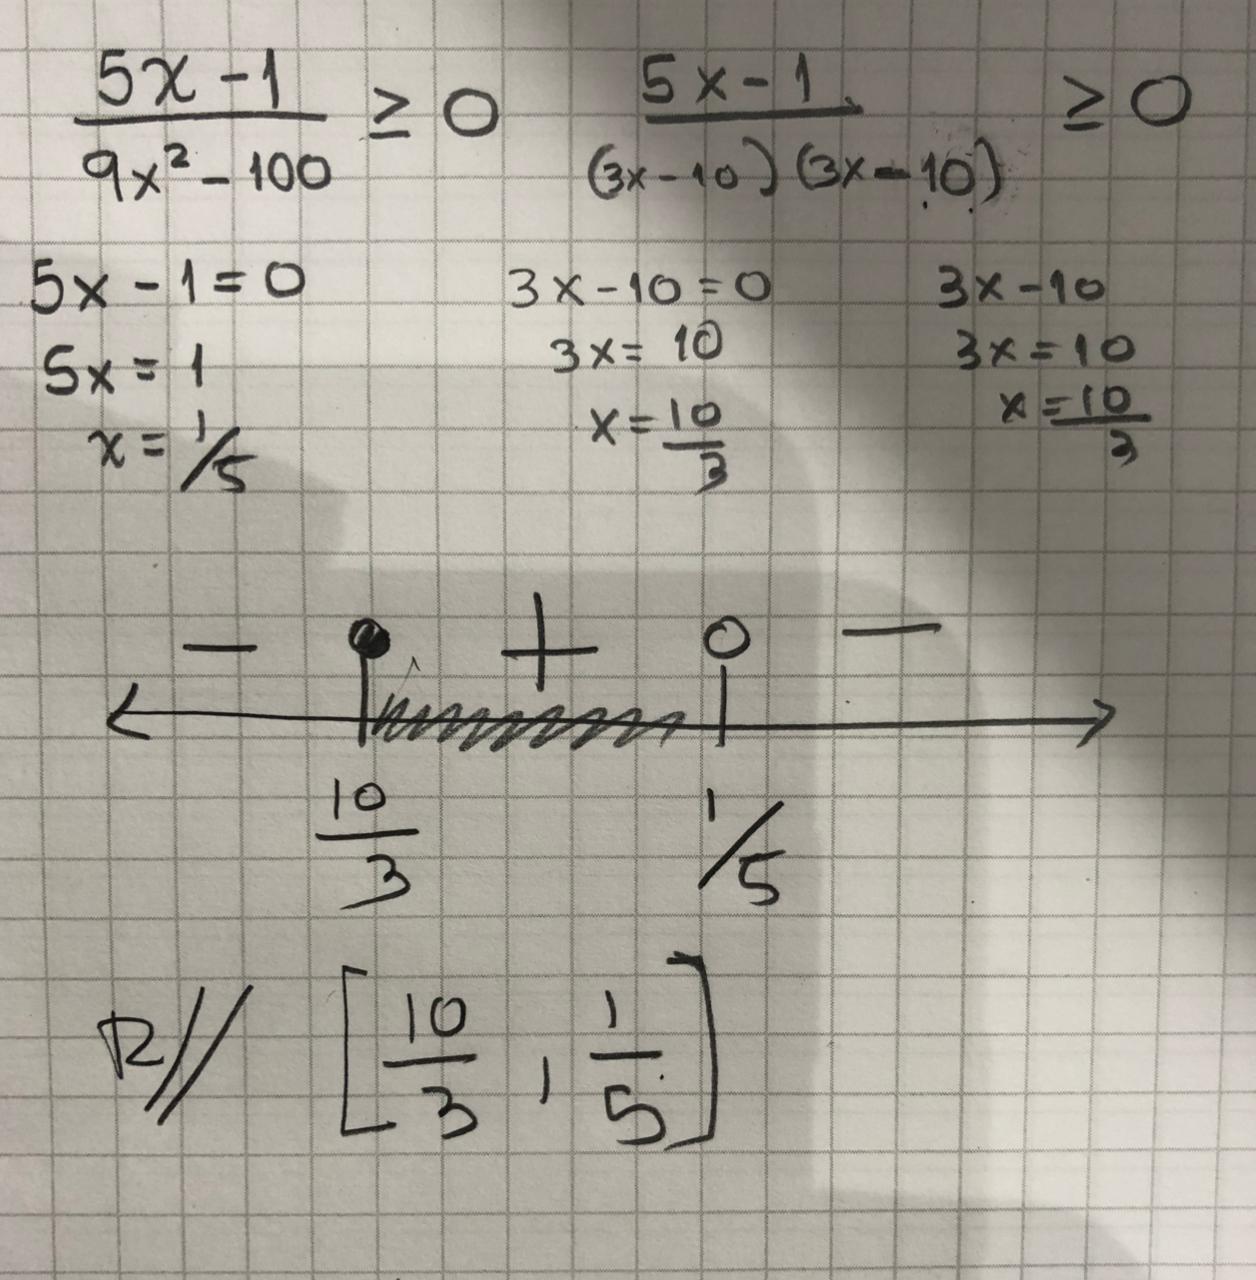 5x - 1 / 9x² - 100 ≥ 0    5x - 1 / (3x - 10) (3x - 10) ≥ 0
5x - 1 = 0    3x - 10 = 0    3x - 10
5x = 1    3x = 10    3x = 10
x = 1/5    x = 10/3    x = 10/3
−    +    −
10/3    1/5
R// [10/3 , 1/5]